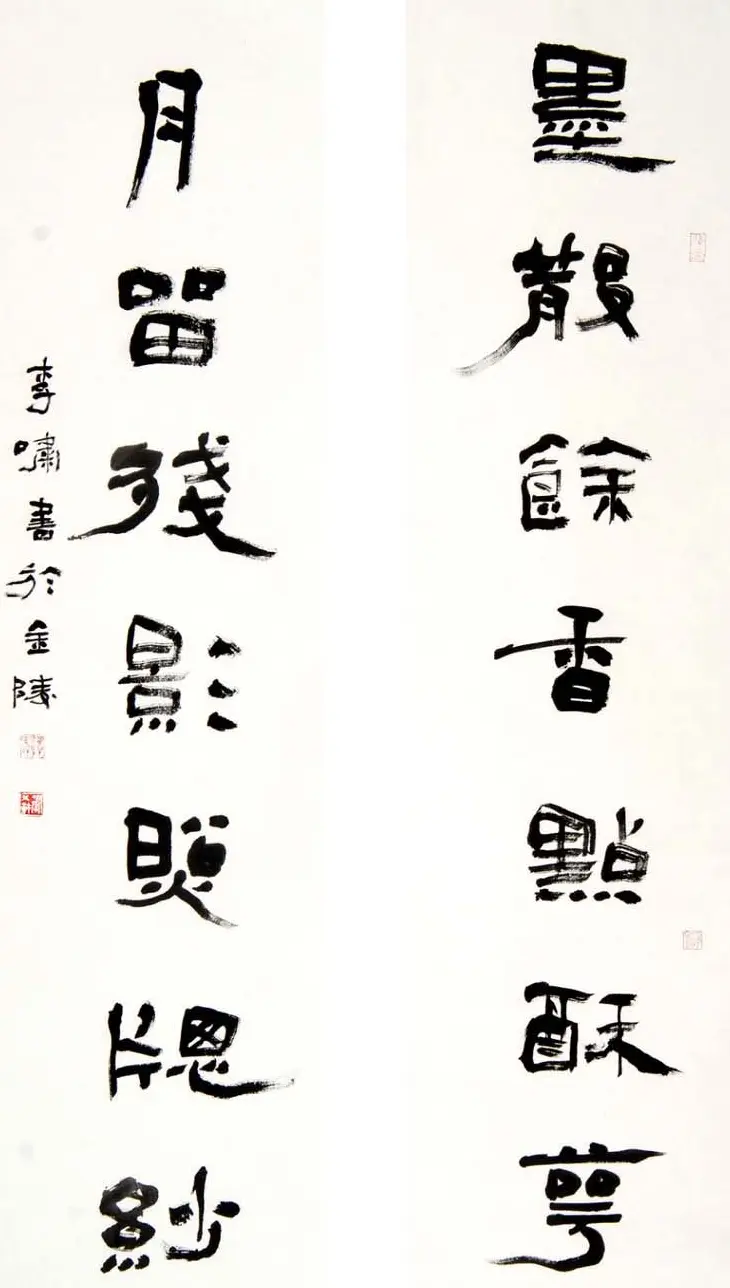 墨散餘香點酥萼
月留殘影照牕紗
李嘯書於金陵